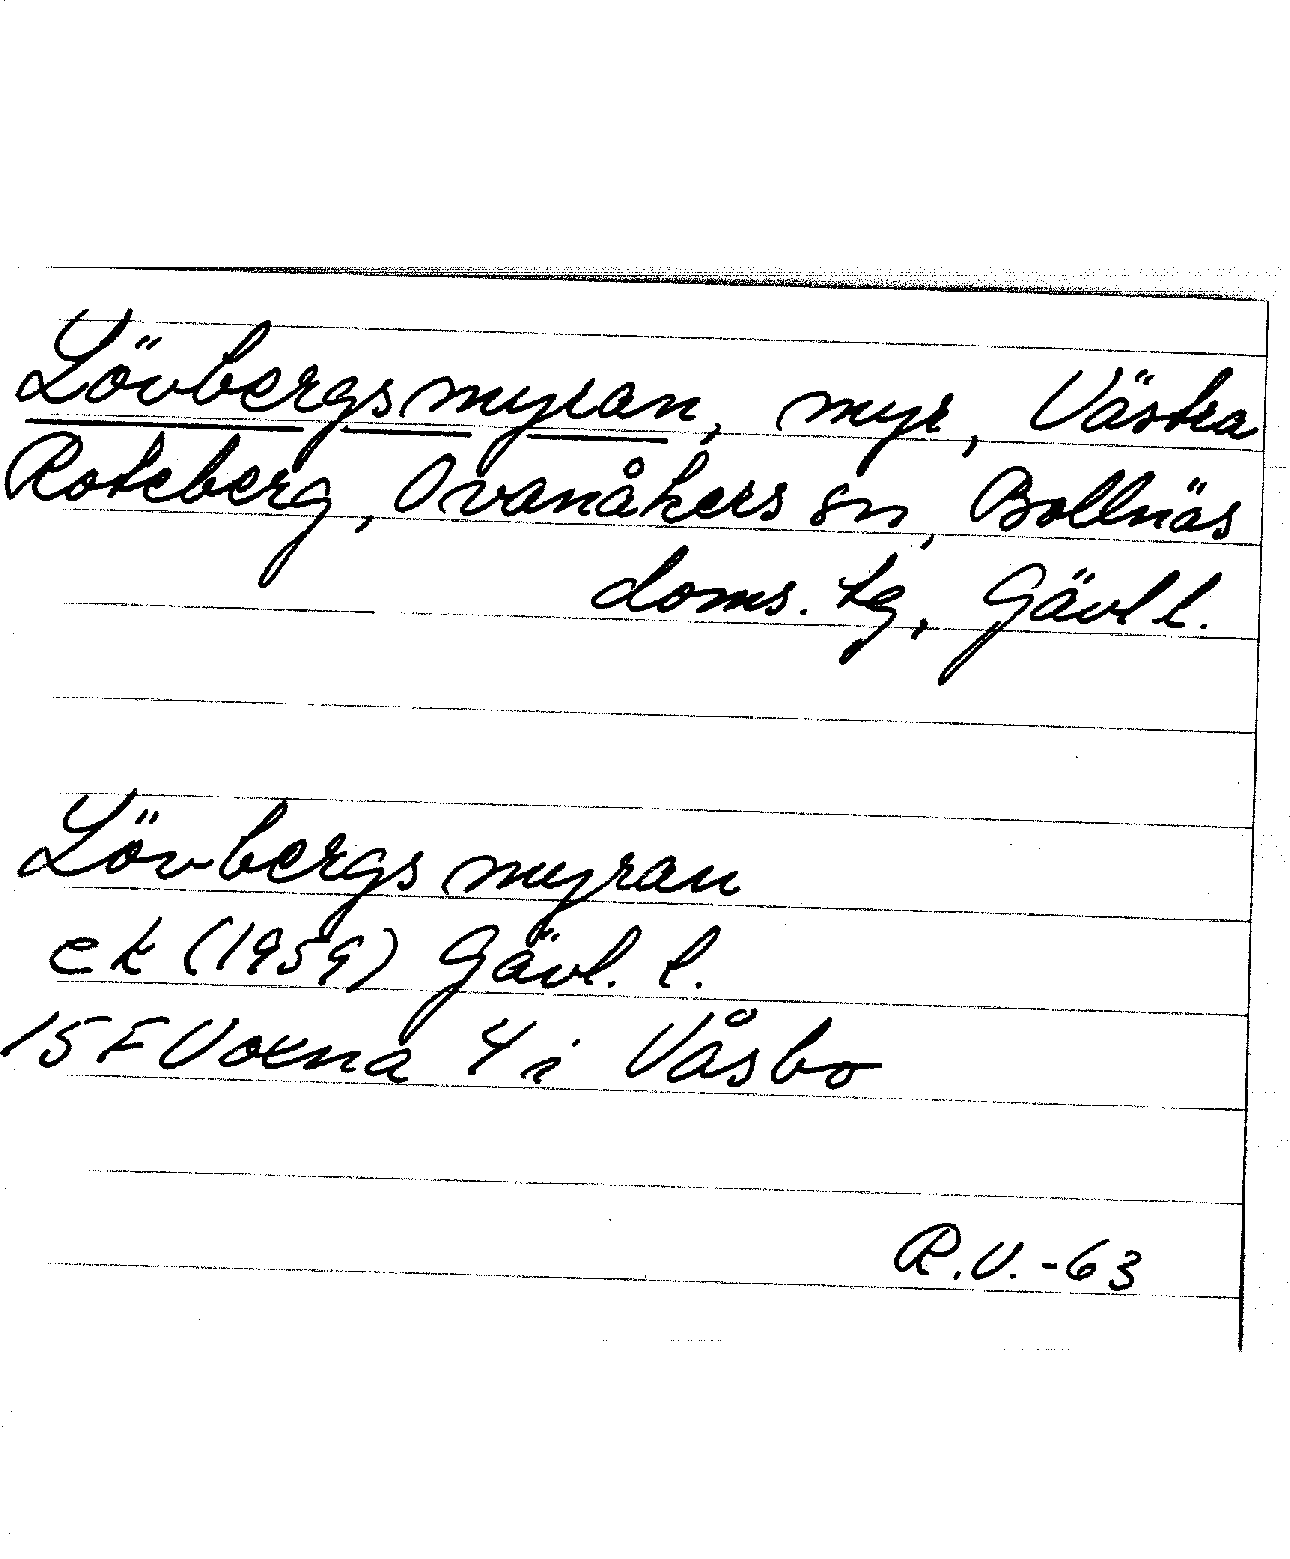 Lövbergsmyran, myr, Västra
Roteberg, Ovanåkers sn, Bollnäs
doms. tg, Gävl l.
Lövbergsmyran
ek (1959) Gävl. l.
15 F Voxna 4 i Våsbo
R.V. -63